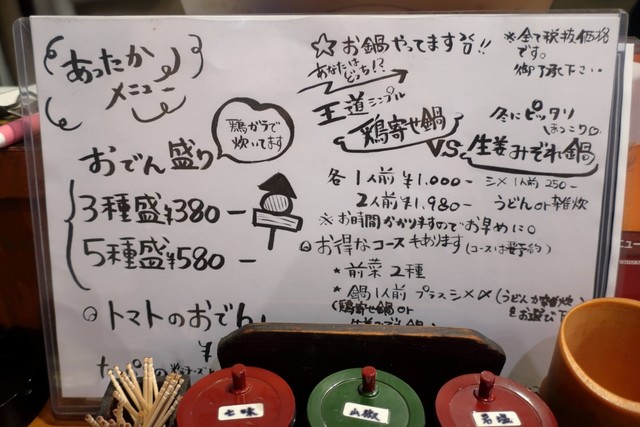 あったか
メニュー
おでん盛り
鶏ガラで
炊いてます
3種盛¥380-
5種盛¥580-
トマトのおでん
¥
☆お鍋やってます!!
あなたは
どっち!?
※全て税抜価格
です。
御了承下さい
王道シンプル
鶏寄せ鍋
VS.
冬にピッタリ
ほっこり
生姜みぞれ鍋
各1人前¥1.000- シメ1人前250-
2人前¥1.980- うどんor雑炊
※お時間かかりますのでお早めに。
お得なコースもあります(コースは要予約)
*前菜2種
*鍋1人前プラスシメ(うどんか雑炊)
をお選び下
(鶏寄せ鍋or
七味
山椒
岩塩